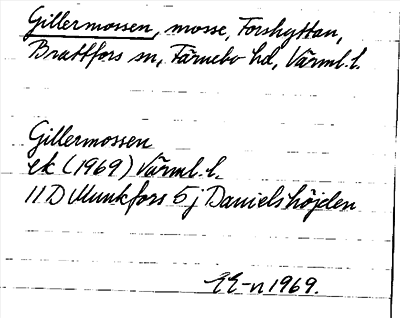 Gillermossen, mosse, Forshyttan,
Brattfors sn, Färnebo hd, Värml. l.
Gillermossen
ek (1969) Värml. l.
11D Munkfors 5j Danielshöjden
EE-n 1969.